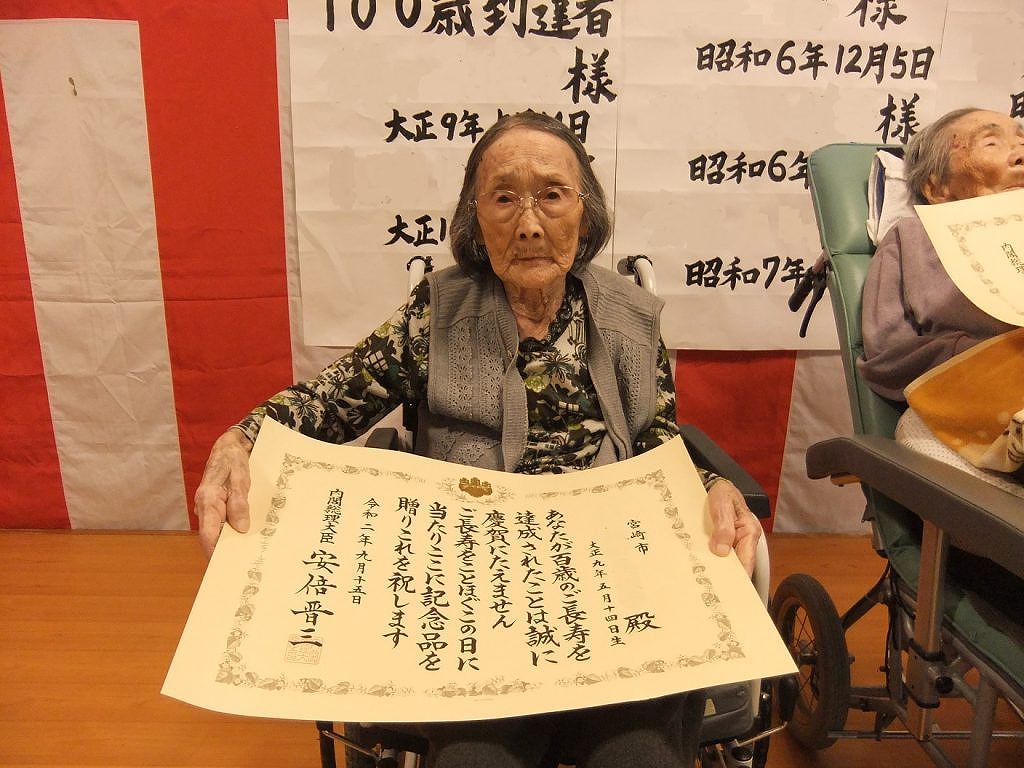 100歳到達者
様
大正9年
大正1
様
昭和6年12月5日
様
昭和6年
昭和7年
宮崎市
殿
大正九年五月十四日生
あなたが百歳のご長寿を
達成されたことは誠に
慶賀にたえません
ご長寿をことほぐこの日に
当たりここに記念品を
贈りこれを祝します
令和二年九月十五日
内閣総理大臣 安倍晋三
内閣総理